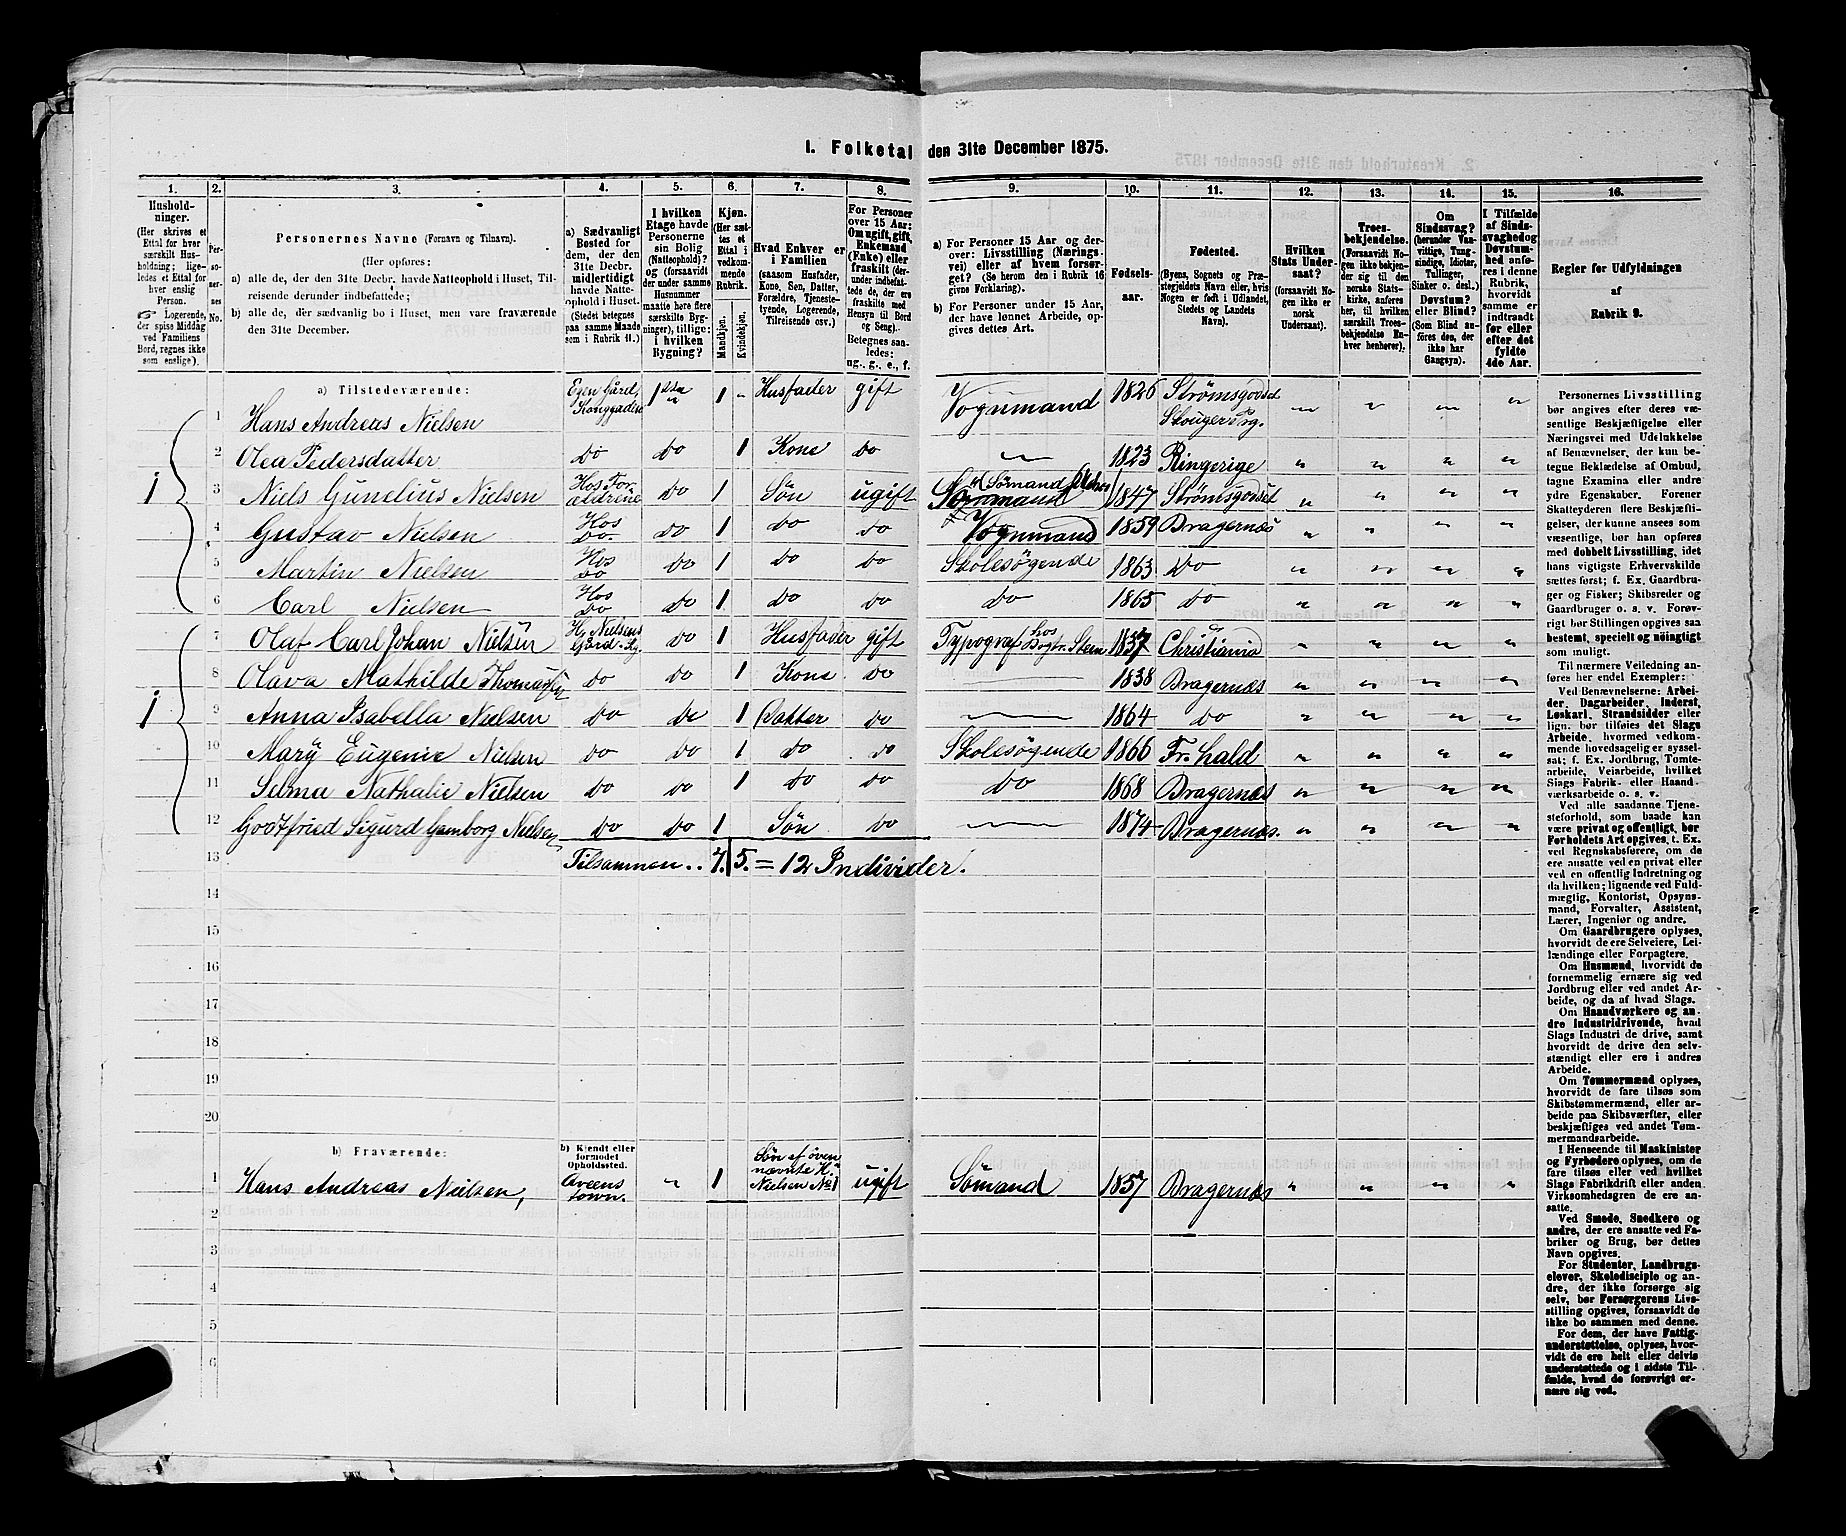 I. Folketal den 31te December 1875.
1. 2. 3. 4. 5. 6. 7. 8. 9. 10. 11. 12. 13. 14. 15. 16.
Hushold-
ninger.
(Her skrives et
Ettal for hver
særskilt Hus-
holdning; lige-
ledes et Ettal
for hver enslig
Person.
Logerende,
der spise Middag
ved Familiens
Bord, regnes ikke
som enslige).
Per-
so-
ner-
nes
No.
Personernes Navne (Fornavn og Tilnavn).
(Her opføres:
a) alle de, der den 31te Decbr. havde Natteophold i Huset, Til-
reisende derunder indbefattede;
b) alle de, der sædvanlig bo i Huset, men vare fraværende
den 31te December.
a) Sædvanligt
Bosted for
dem, der den
31te Decbr.
midlertidigt
havde Natte-
ophold i Huset.
(Stedet betegnes
paa samme Maade
som i Rubrik 11.)
I hvilken
Etage havde
Personerne
sin Bolig
(Natteophold)?
og (forsaavidt
der under samme
Husnummer
maatte høre flere
særskilte Byg-
ninger), tillige:
i hvilken
Bygning?
Kjøn.
(Her sæt-
tes et
Ettal i
vedkom-
mende
Rubrik.
Mandkjøn.
Kvindekjøn.
Hvad Enhver er
i Familien
(saasom Husfader,
Kone, Søn, Datter,
Forældre, Tjeneste-
tyende, Logerende,
Tilreisende osv.)
For Personer
over 15 Aar:
Om ugift, gift,
Enkemand
(Enke) eller
fraskilt (der-
under indbefat-
tede de, der ere
fraskilte med
Hensyn til Bord
og Seng).
Betegnes saa-
ledes:
ug., g., e., f.
a) For Personer 15 Aar og der-
over: Livsstilling (Nærings-
vei) eller af hvem forsør-
get? (Se herom den i Rubrik 16
givne Forklaring).
b) For Personer under 15 Aar,
der have lønnet Arbeide, op-
gives dettes Art.
Fødsels-
aar.
Fødested.
(Byens, Sognets og Præ-
stegjeldets Navn eller, hvis
Nogen er født i Udlandet,
Stedets og Landets
Navn).
Hvilken
Stats Under-
saat?
(forsaavidt No-
gen ikke er
norsk
Undersaat).
Troes-
bekjendelse.
(Forsaavidt No-
gen ikke bekjen-
der sig til den
norske Stats-
kirke, anføres
her, til hvilken
særskilt Troes-
bekjendelse En-
hver henhører).
Om
Sindssvag?
(herunder Van-
vittige, Tung-
sindige, Idioter,
Tullinger,
Sinker o. desl.)
Døvstum?
eller Blind?
(Som Blind an-
føres den, der
ikke har
Gangsyn).
I Tilfælde
af Sinds-
svaghed og
Døvstum-
hed anfø-
res i denne
Rubrik,
hvorvidt
samme er
indtraadt
før eller
efter det
fyldte
4de Aar.
Regler for Udfyldningen
af
Rubrik 9.
a) Tilstedeværende:
1 Hans Andreas Nielsen Egen Gård, Konggaden 1ste 1 Husfader gift Vognmand 1826 Strømsgodset Skouger Prg.
2 Olea Pedersdatter do do 1 Kone do 1823 Ringerige
1 3 Niels Gunelius Nielsen Hos Forældrene do 1 Søn ugift Sømand 1847 Strømsgodset
4 Gustav Nielsen Hos do. do 1 do do Vognmand 1859 Bragernæs
5 Martin Nielsen Hos do do 1 do do Skolesøgende 1863 do
6 Carl Nielsen Hos do do 1 do do do 1865 do
7 Olaf Carl Johan Nielsen H. Nielsens Gård do 1 Husfader gift Typograf hos Bogtr. Steen 1837 Christiania
8 Olava Mathilde Thomassen do do 1 Kone do 1838 Bragernæs
1 9 Anna Isabella Nielsen do do 1 Datter do 1864 do
10 Mary Eugenie Nielsen do do 1 do do Skolesøgende 1866 Fr.hald
11 Selma Nathalie Nielsen do do 1 do do do 1868 Bragernæs
12 Godtfried Sigurd Gamborg Nielsen do do 1 Søn do 1874 Bragernæs.
13 Tilsammen.. 7. 5. = 12 Individer.
14
15
16
17
18
19
20
b) Fraværende:
b) Kjendt eller
formodet
Opholdssted.
1 Hans Andreas Nielsen, Qveens town. 1 Søn af oven nævnte H. Nielsen No 1 ugift Sømand 1857 Bragernæs
2
3
4
5
6
Personernes Livsstilling
bør angives efter deres væ-
sentlige Beskjæftigelse eller
Næringsvei med Udelukkelse
af Benævnelser, der kun be-
tegne Beklædelse af Ombud,
tagne Examina eller andre
ydre Egenskaber. Forener
Skatteyderen flere Beskjæfti-
gelser, der kunne ansees som
væsentlige, bør han opføres
med dobbelt Livsstilling, idet
hans vigtigste Erhvervskilde
sættes først; f. Ex. Gaardbru-
ger og Fisker; Skibsreder og
Gaardbruger o. s. v. Forøv-
rigt bør Stillingen opgives saa
bestemt, specielt og nöingtigt
som muligt.
Til nærmere Veiledning an-
føres her endel Exempler:
Ved Benævnelserne: Arbei-
der, Dagarbeider, Inderst,
Løskarl, Strandsidder eller
lign. bør tilføies det Slags
Arbeide, hvormed vedkom-
mende hovedsagelig er syssel-
sat; f. Ex. Jordbrug, Tomte-
arbeide, Veiarbeide, hvilket
Slags Fabrik- eller Haand-
værksarbeide o. s. v.
Ved alle saadanne Tjene-
steforhold, som baade kan
være privat og offentligt, bør
Forholdets Art opgives, t. Ex.
ved Regnskabsførere, om de
ere ansatte ved en privat eller
ved en offentlig Indretning og
da hvilken; lignende ved Fuld-
mægtig, Kontorist, Opsyns-
mand, Forvalter, Assistent,
Lærer, Ingeniør og andre.
Om Gaardbrugere oplyses,
hvorvidt de ere Selveiere, Lei-
lændinge eller Forpagtere.
Om Husmænd, hvorvidt de
fornemmelig ernære sig ved
Jordbrug eller ved andet Ar-
beide, og da af hvad Slags.
Om Haandværkere og an-
dre Industridrivende, hvad
Slags Industri de drive, samt
hvorvidt de drive den selv-
stændigt eller ere i andres
Arbeide.
Om Tømmermænd oplyses,
hvorvidt de fare tilsøs som
Skibstømmermænd, eller ar-
beide paa Skibsværfter, eller
beskjæftiges ved andet Tøm-
mermandsarbeide.
I Henseende til Maskinister
og Fyrbødere oplyses, om de
fare tilsøs eller ved hvilket
Slags Fabrikdrift eller anden
Virksomhedsgren de ere an-
satte.
Ved Smede, Snedkere og
andre, der ere ansatte ved Fa-
briker og Brug, bør dettes
Navn opgives.
For Studenter, Landbrugs-
elever, Skoledisciple og an-
dre, der ikke forsørge sig
selv, bør Forsørgerens Livs-
stilling opgives, forsaavidt de
ikke bo sammen med denne.
For dem, der have Fattig-
understøttelse, oplyses, hvor-
vidt de ere helt eller delvis
understøttede og i sidste Til-
fælde, hvad de forøvrigt er-
nære sig ved.